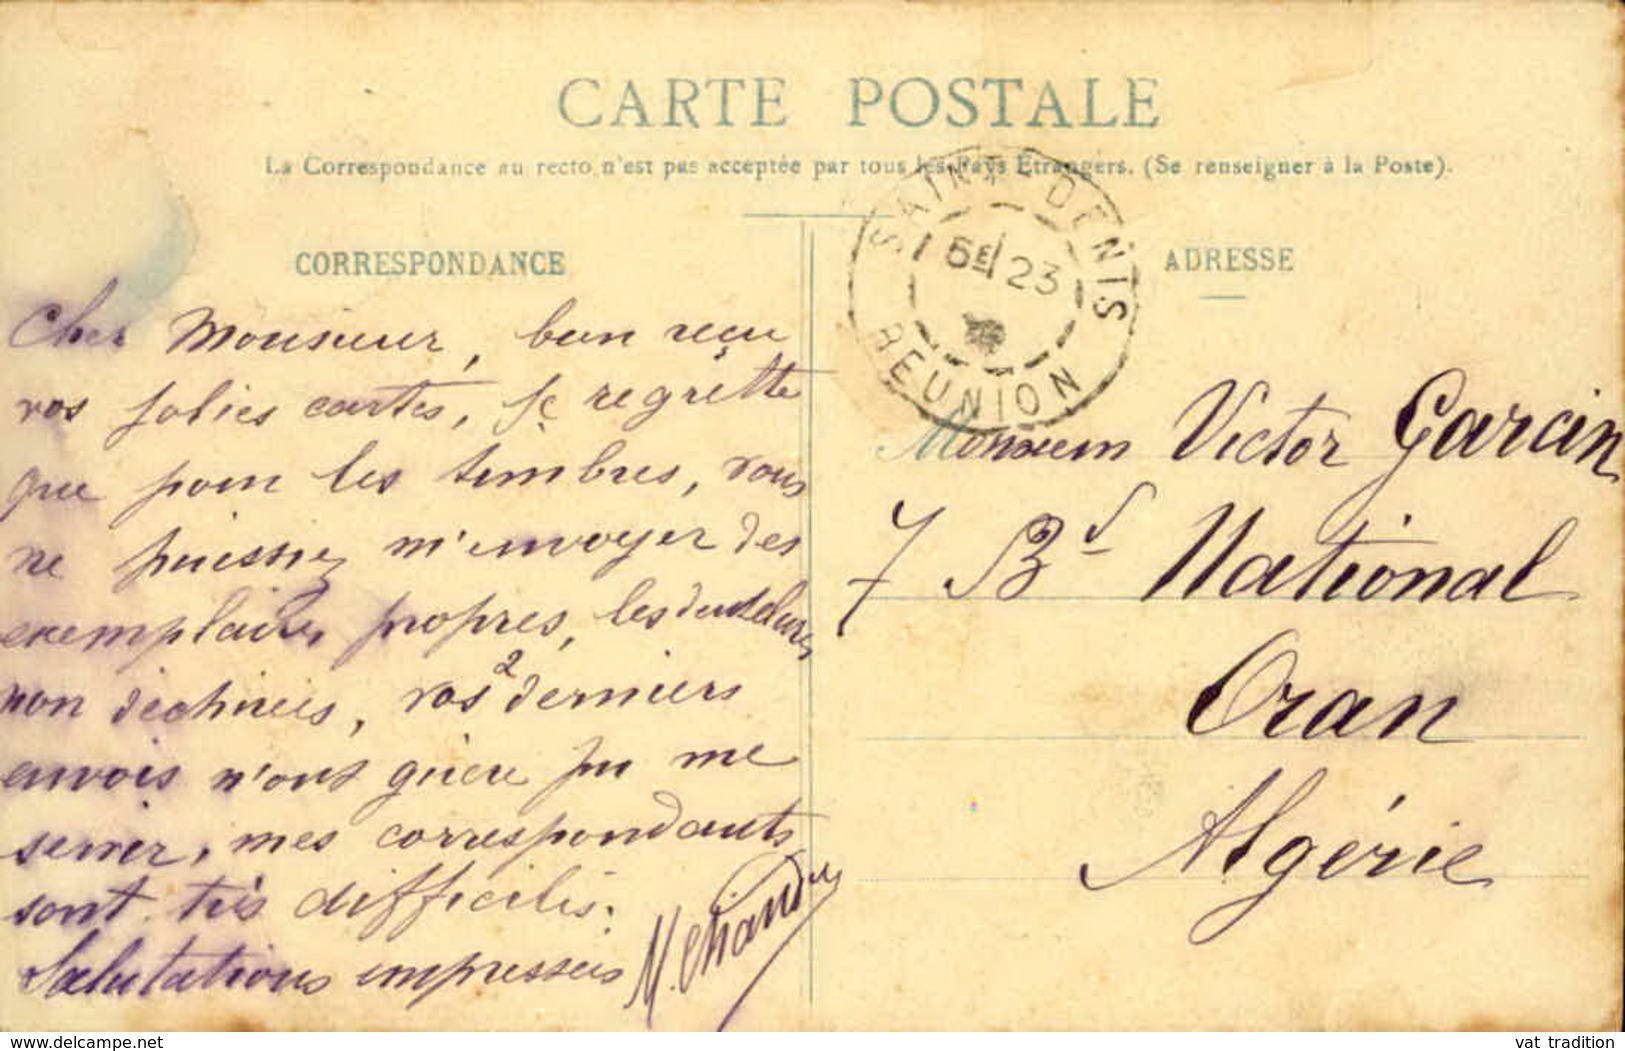 CARTE POSTALE
La Correspondance au recto n'est pas acceptée par tous les Pays Etrangers. (Se renseigner à la Poste).
CORRESPONDANCE
Cher Monsieur, bien reçu
vos jolies cartes, je regrette
que pour les timbres, vous
ne puissiez m'envoyer des
exemplaires propres, les dentelures
non déchirées, vos 2 derniers
envois n'ont guère pu me
servir, mes correspondants
sont très difficiles.
Salutations empressées
SAINT-DENIS
23
REUNION
ADRESSE
Monsieur Victor Garcin
7 Bd National
Oran
Algérie
delcampe.net
vat tradition